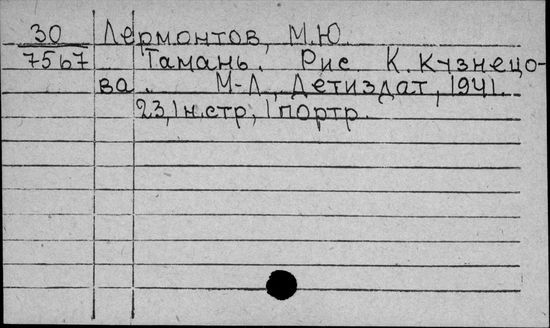 30 Лермонтов, М.Ю.
7567 Тамань. Рис К. Кузнецо-
ва. М-Л., Детиздат, 1941.
23,1 н.стр, 1 портр.